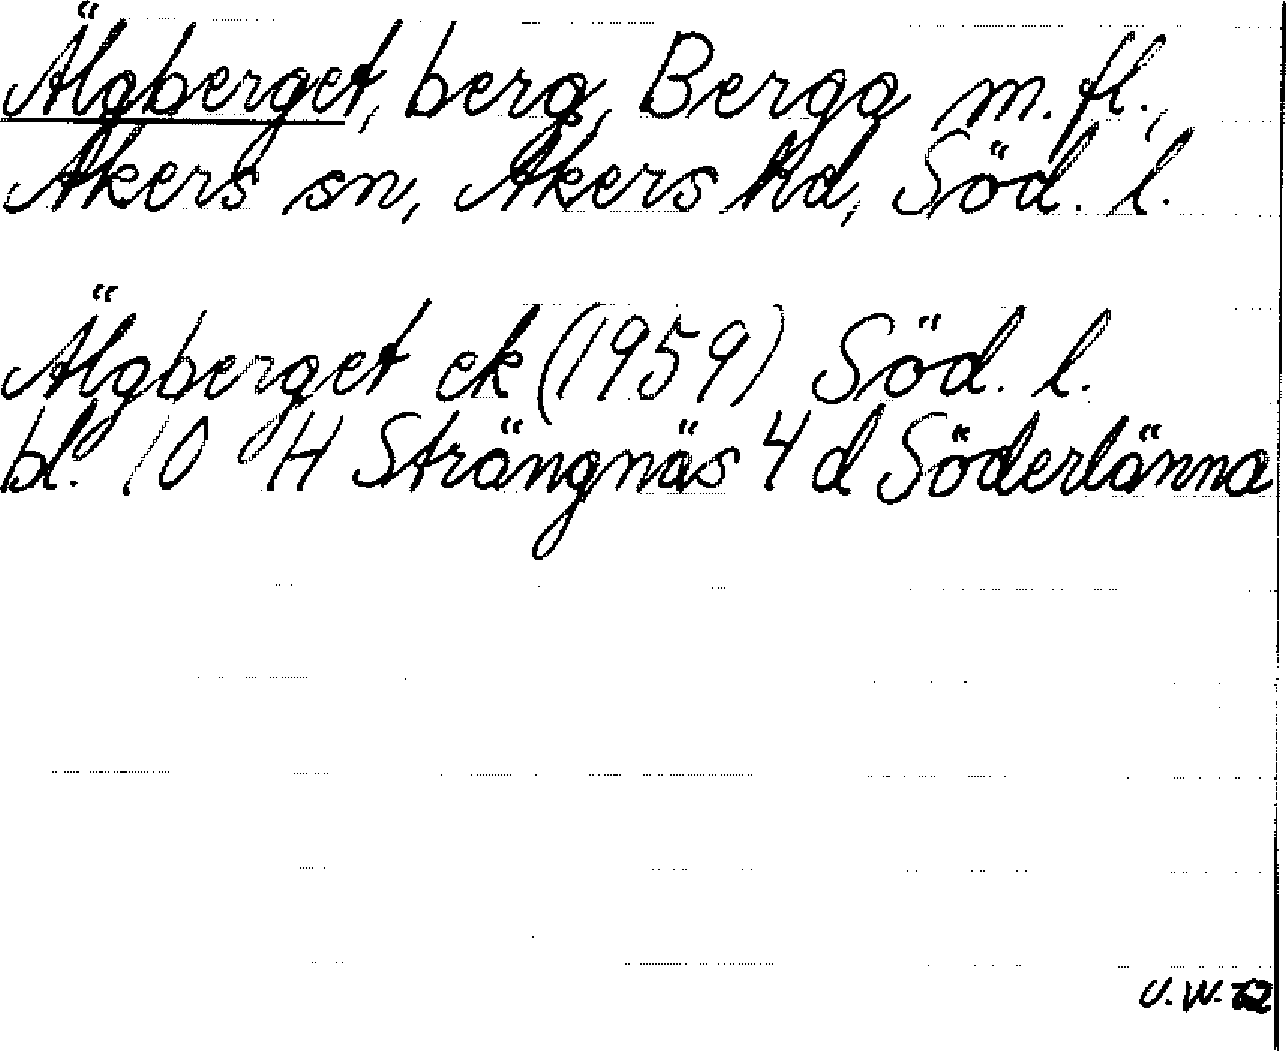 Älgberget, berg, Berga m.fl.,
Åkers sn, Åkers hd, Söd. l.
Älgberget ek (1959) Söd. l.
bl. 10 H Strängnäs 4 d Söderlänna
U.W. 62